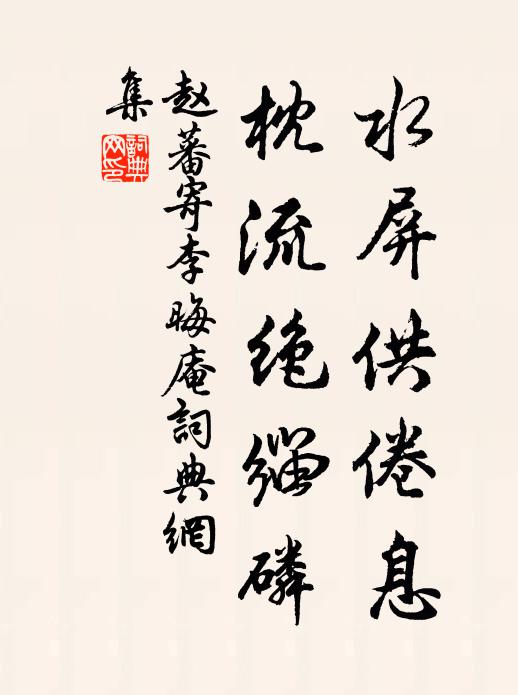 水屏供倦息
枕流绝缁磷
赵蕃寄李晦庵詞典網
集
詞典
网印